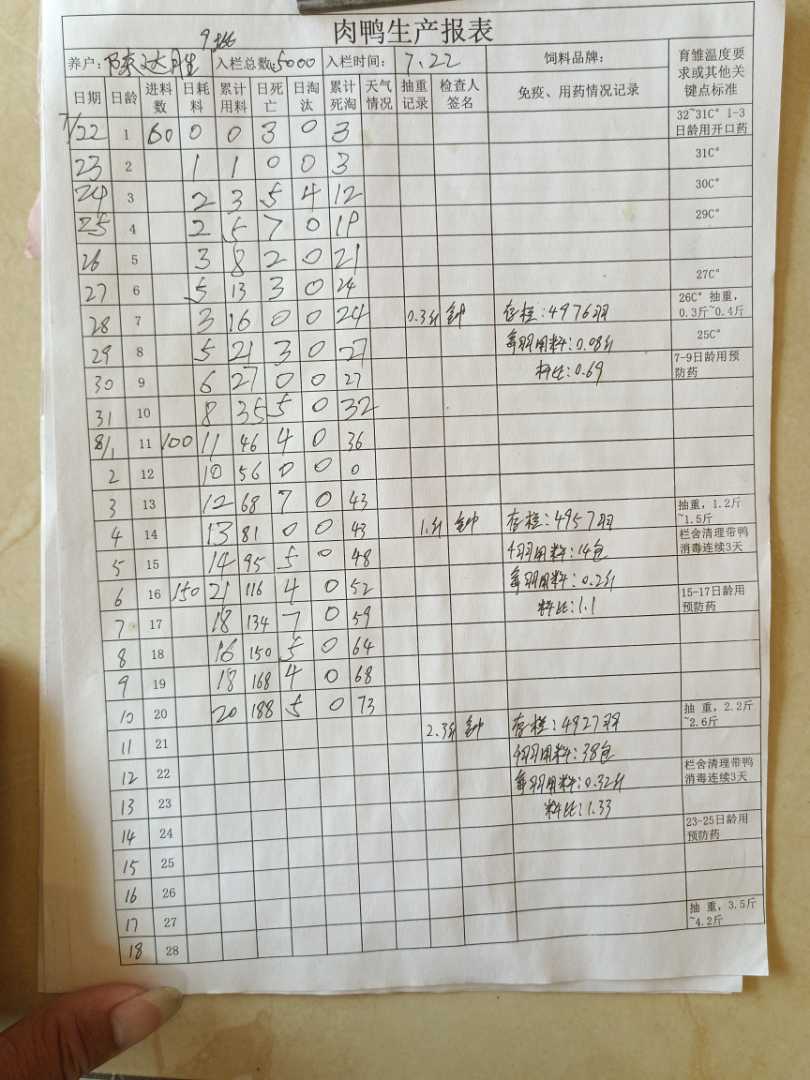 肉鸭生产报表
9批
养户: 陈达胜 入栏总数:5000 入栏时间: 7.22 饲料品牌: 育雏温度要求或其他关键点标准
日期 日龄 进料数 日耗料 累计用料 日死亡 日淘汰 累计死淘 天气情况 抽重记录 检查人签名 免疫、用药情况记录
7/22 1 60 0 0 3 0 3 32~31C° 1-3日龄用开口药
23 2 1 1 0 0 3 31C°
24 3 2 3 5 4 12 30C°
25 4 2 5 7 0 19 29C°
26 5 3 8 2 0 21
27 6 5 13 3 0 24 27C°
28 7 3 16 0 0 24 0.3斤 钟 存栏:4976羽 26C° 抽重,0.3斤~0.4斤
29 8 5 21 3 0 27 每羽用料:0.08斤 25C°
30 9 6 27 0 0 27 料比:0.69 7-9日龄用预防药
31 10 8 35 5 0 32
8/1 11 100 11 46 4 0 36
2 12 10 56 0 0 0
3 13 12 68 7 0 43
4 14 13 81 0 0 43 1.斤 钟 存栏:4957羽 抽重,1.2斤~1.5斤
5 15 14 95 5 0 48 今羽用料:14包 栏舍清理带鸭消毒连续3天
6 16 150 21 116 4 0 52 每羽用料:0.2斤
7 17 18 134 7 0 59 料比:1.1 15-17日龄用预防药
8 18 16 150 5 0 64
9 19 18 168 4 0 68
10 20 20 188 5 0 73
11 21 2.3斤 钟 存栏:4927羽 抽重,2.2斤~2.6斤
12 22 今羽用料:38包 栏舍清理带鸭消毒连续3天
13 23 每羽用料:0.32斤
14 24 料比:1.33 23-25日龄用预防药
15 25
16 26
17 27 抽重,3.5斤~4.2斤
18 28